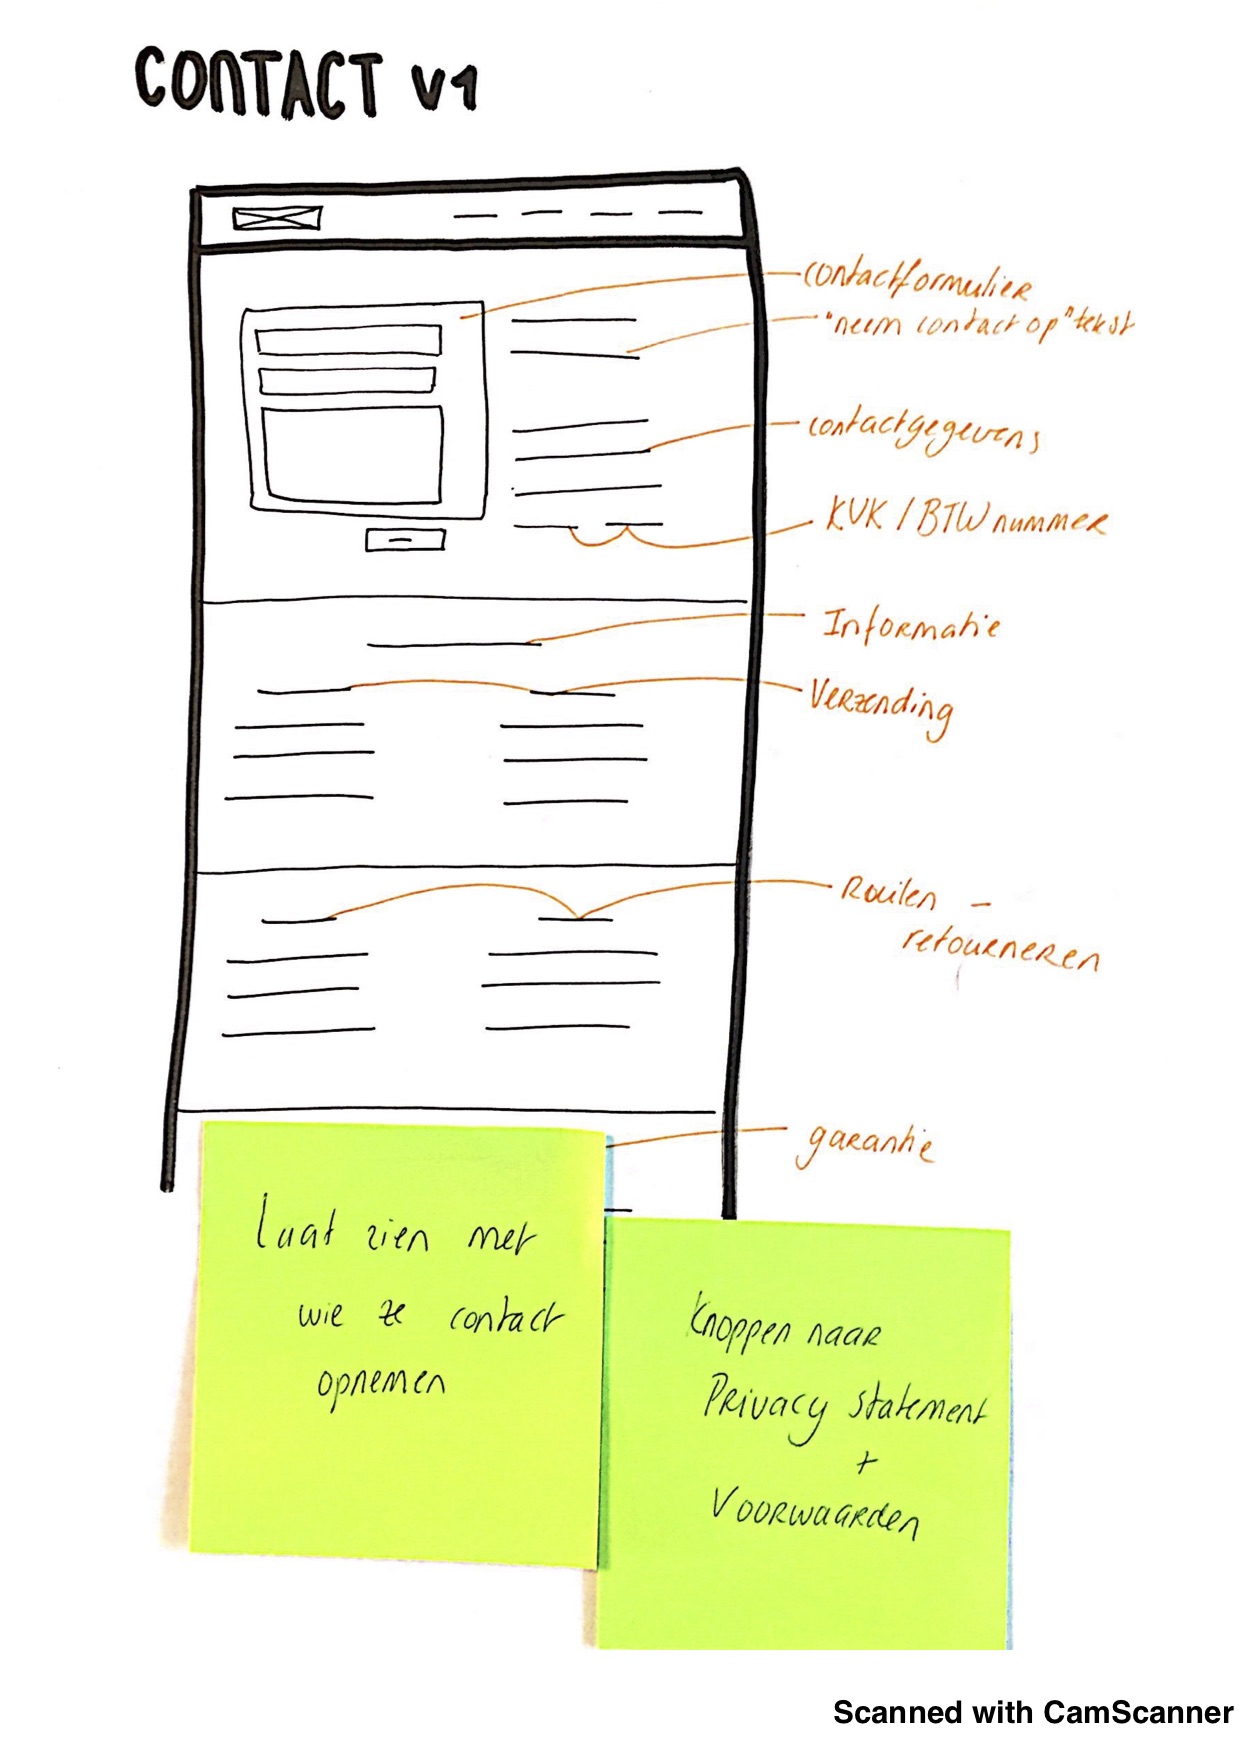 CONTACT v1
contactformulier
"neem contact op" tekst
contactgegevens
KVK / BTW nummer
Informatie
Verzending
Ruilen -
retourneren
garantie
Laat zien met
wie ze contact
opnemen
Knoppen naar
Privacy statement
+
Voorwaarden
Scanned with CamScanner